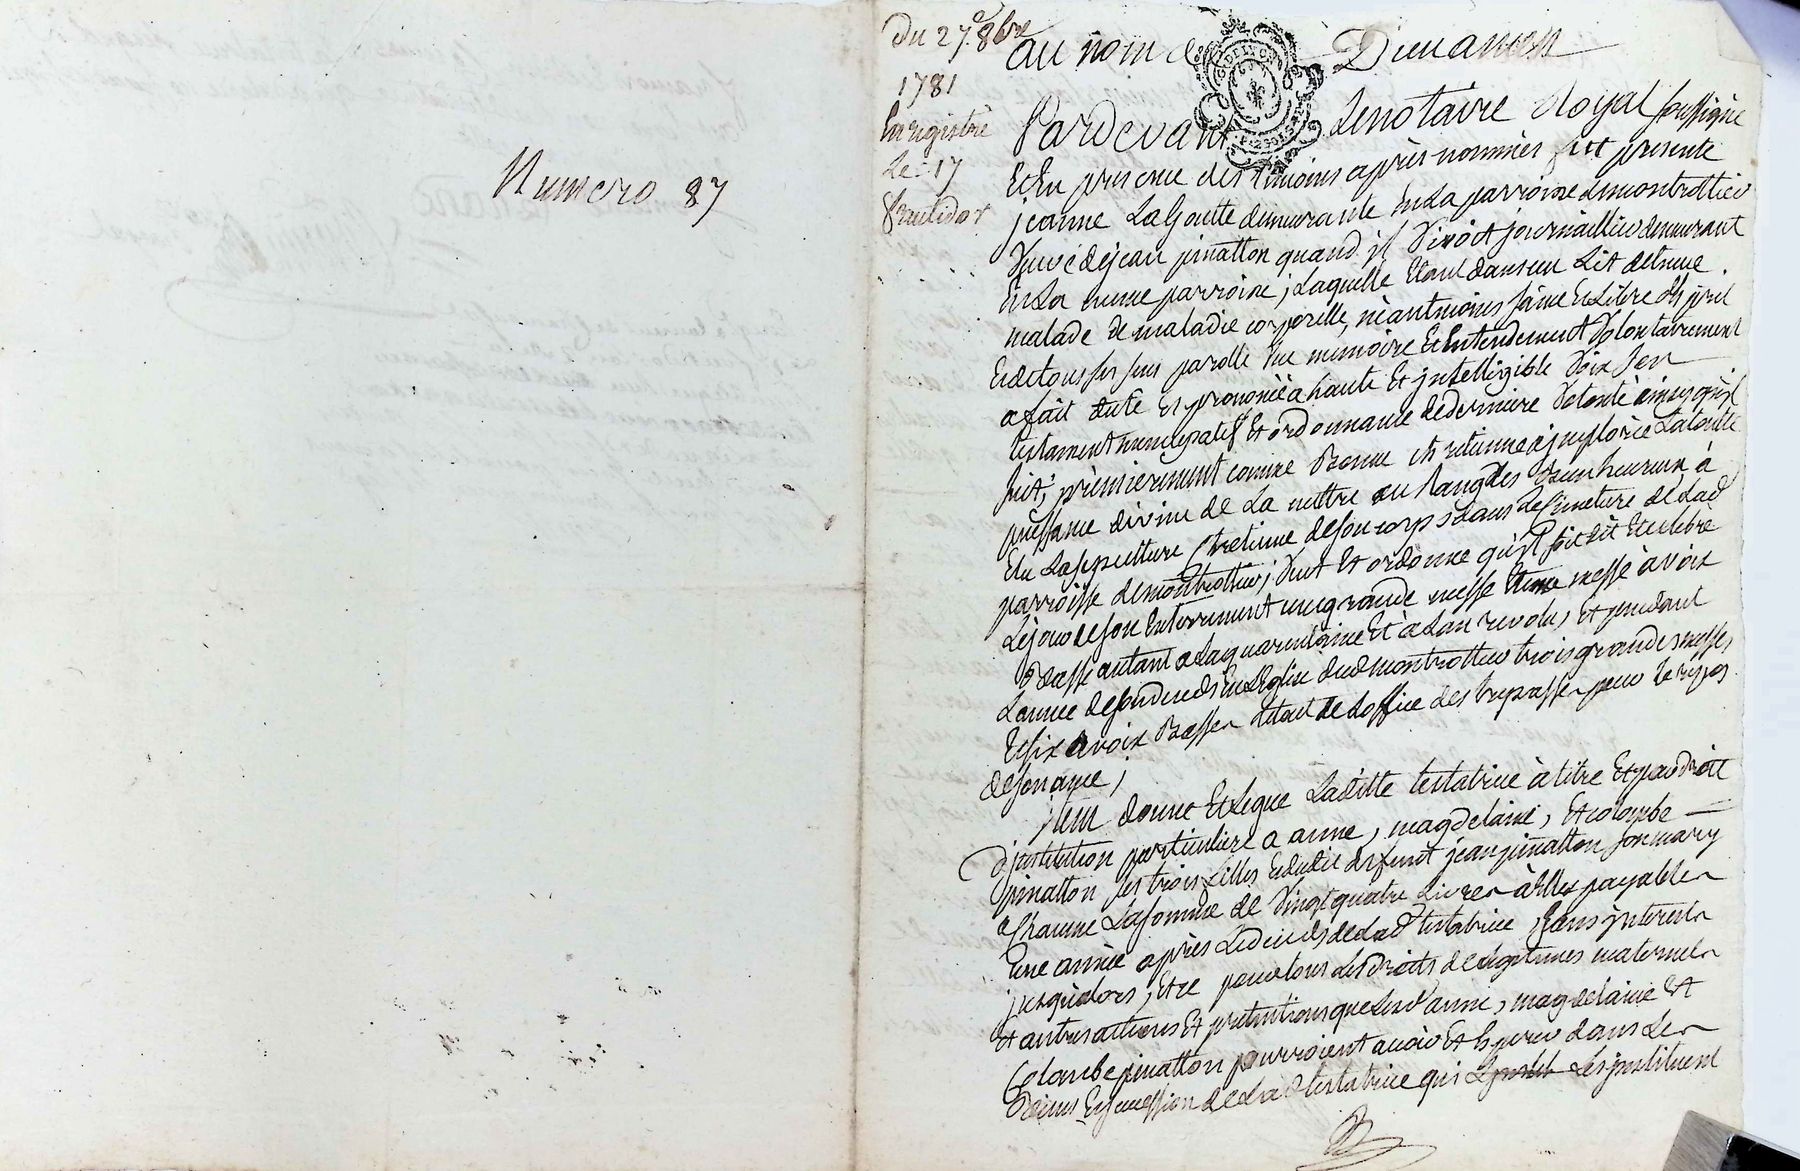 Numero 87
Du 27. 8bre
1781
Enregistré
Le 17
au nom de Dieu amen
Pardevant Le notaire Royal soussigné
Et En presence des temoins après nommés fut presente
jeanne La Goutte demeurante En La parroisse de montrottier
veuve de jean pinatton quand il vivoit journaillier demeurant
En La meme parroisse, Laquelle Etant dans un Lit detenue
malade de maladie corporelle, néantmoins saine Et Libre d'Esprit
Et de tous ses sens parolle vue memoire Et Entendement volontairement
a fait dicté et prononcé a haute Et jntelligible voix son
testament nuncupatif Et ordonnance de derniere volonté ainsy qu'jl
suit; premierement comme Bonne chretienne a jmploré La toutte
puissance divine de La mettre au Rang des Bienheureux, à
Elu La sepulture chretienne de son corps dans Le cimetiere de Lad
parroisse de montrottier, veut Et ordonne qu'jl soit dit Et celebré
Le jour de son Enterrement une grande messe Et une messe à voix
Basse autant a La quarantaine Et à L'an revolu, Et pendant
L'année de son deceds En L'Eglise dud montrottier trois grandes messes
Et six à voix Basse Le tout de L'office des trepassés pour Le repos
de son ame;
jtem donne Et Legue Laditte testatrice à titre Et par droit
d'jnstitution particuliere a anne, magdelaine, Et colombe
pinatton ses trois filles Et dudit defunt jean pinatton son mary
a chacune La somme de vingt quatre Livres à Elles payables
une année après Le deceds de lad testatrice sans jnterests
jusqu'alors, Et ce pour tous Les droits de Legitimes maternels
et autres actions Et pretentions que Lesd anne, magdelaine Et
Colombe pinatton pourroient avoir Et Esperer dans Les
Biens Et succession de Lad testatrice qui Les jnstituent